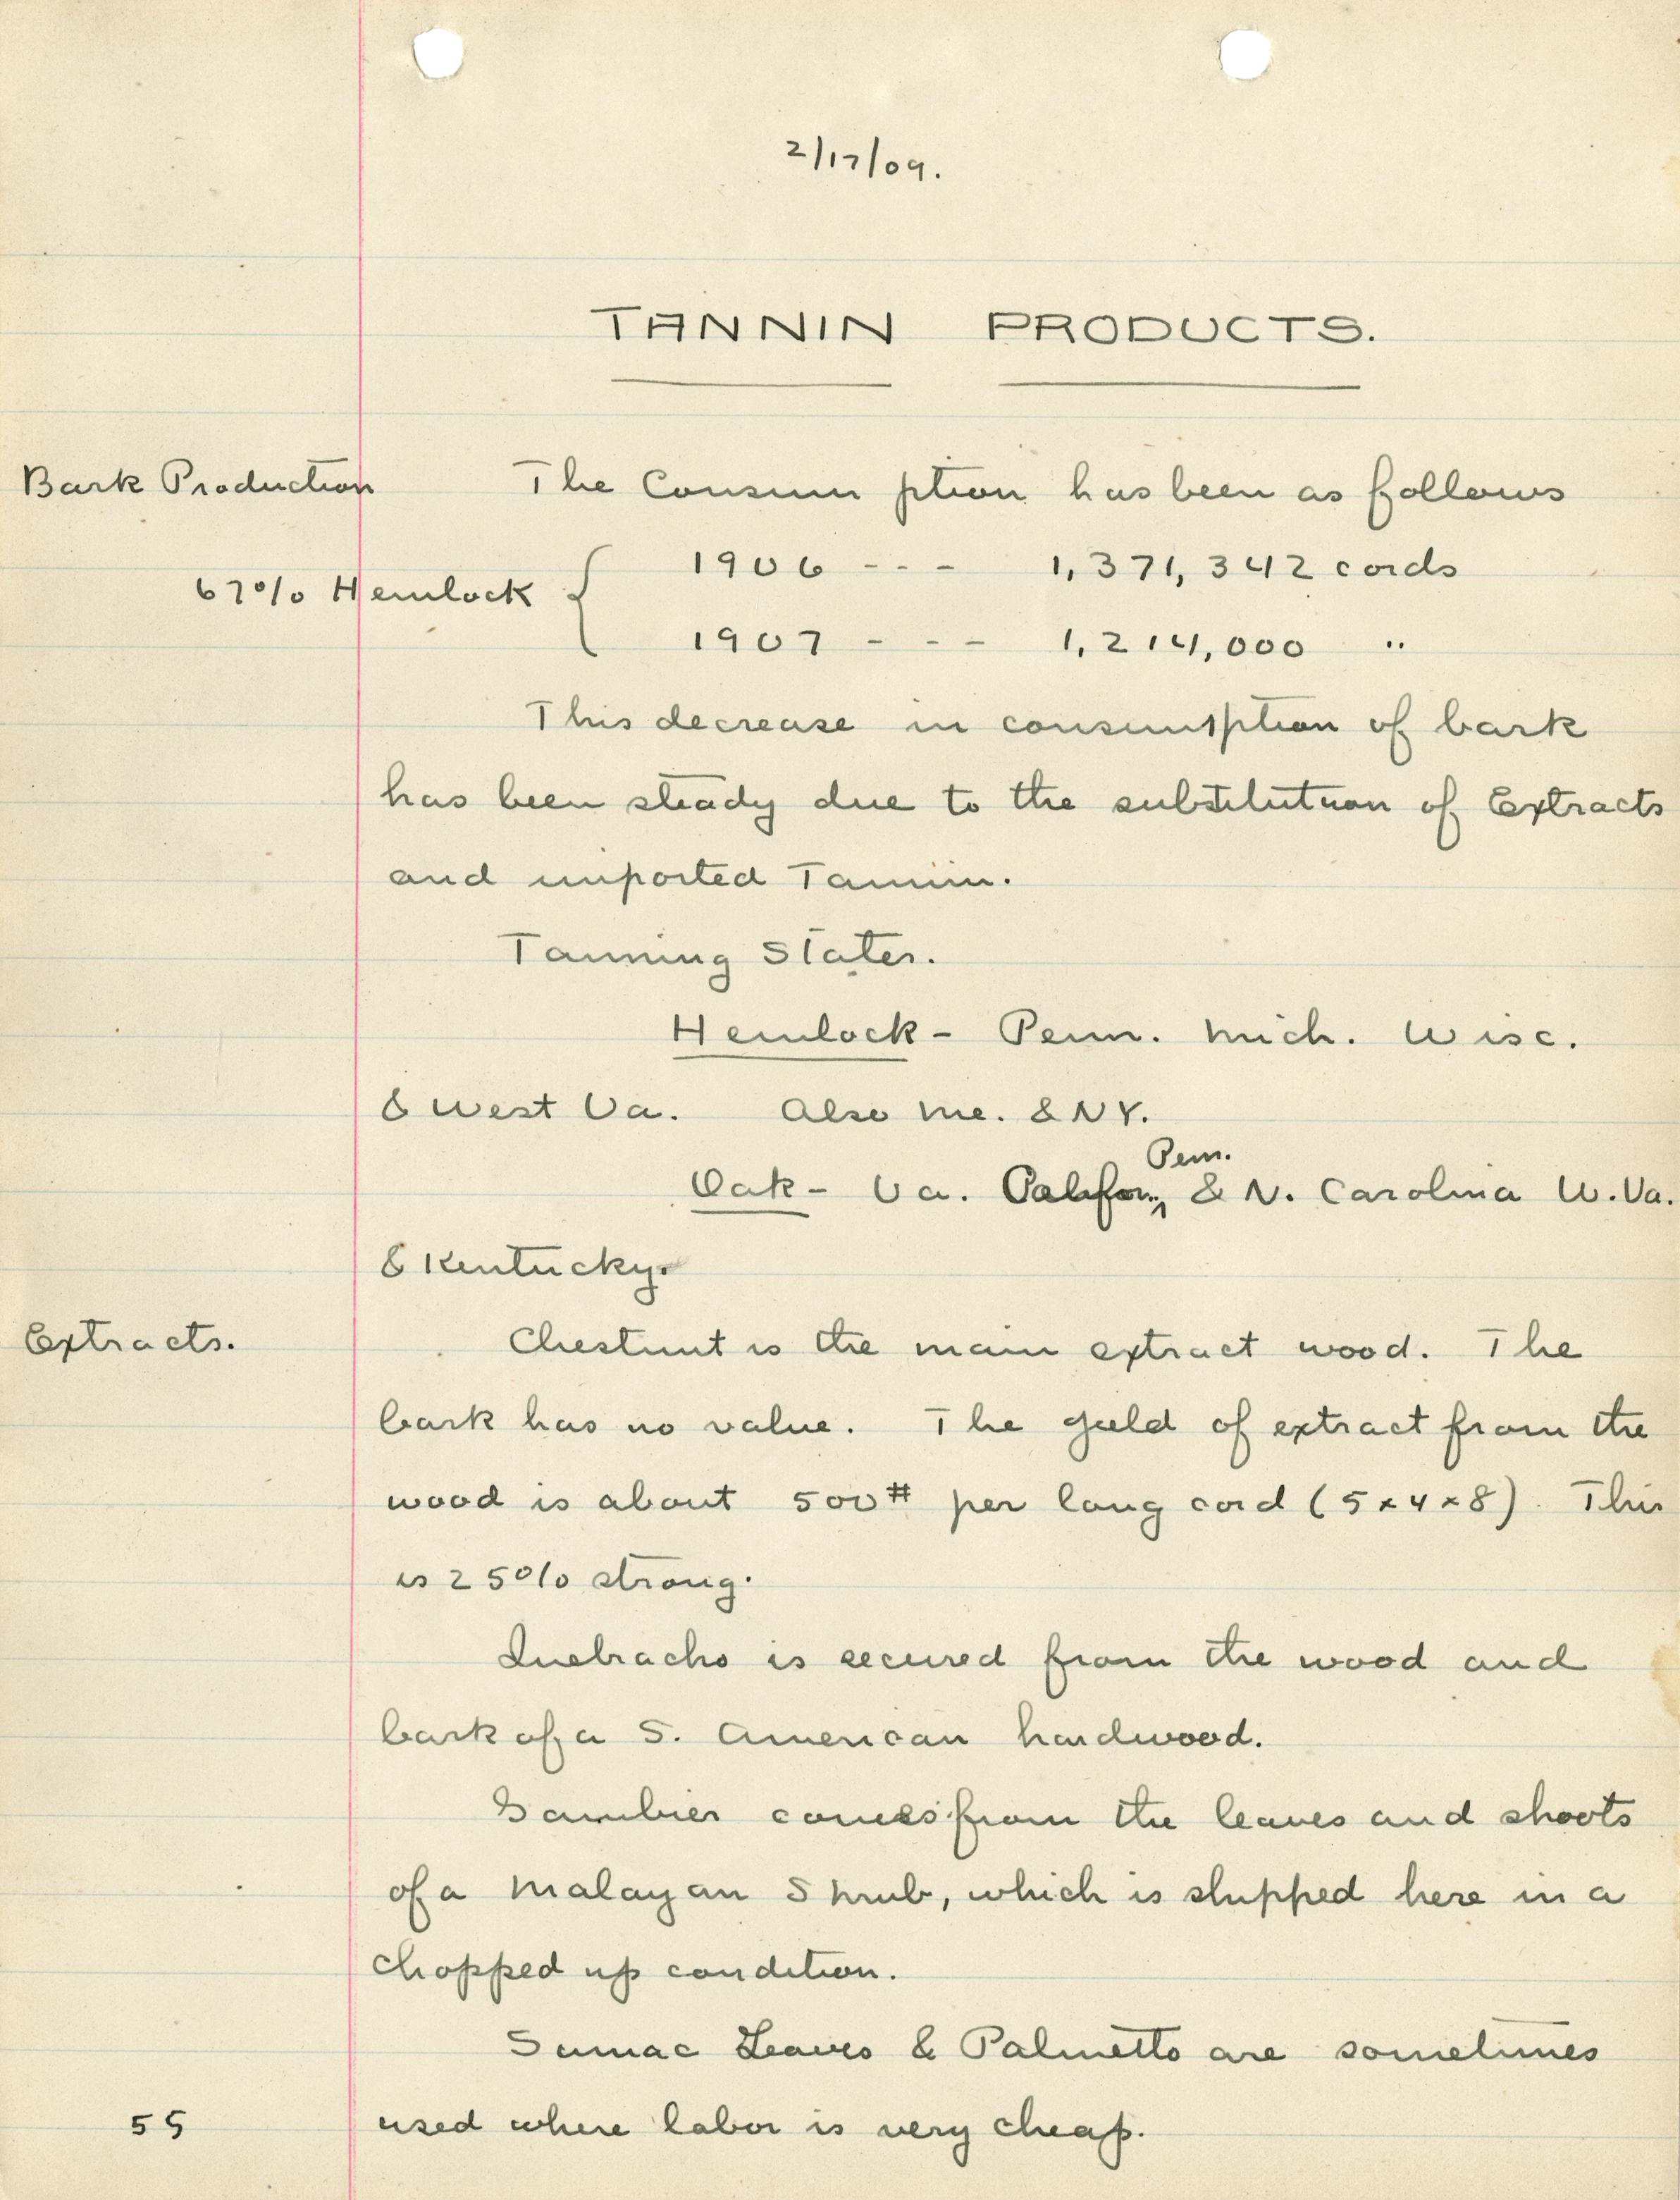 2/17/09.
TANNIN PRODUCTS.
Bark Production The Consumption has been as follows
67% Hemlock { 1906 --- 1,371,342 cords
1907 --- 1,214,000 "
This decrease in consumption of bark
has been steady due to the substitution of Extracts
and imported Tannin.
Tanning States.
Hemlock - Penn. Mich. Wisc.
& West Va. Also Me. & NY.
Penn.
Oak - Va. Califor., & N. Carolina W. Va.
& Kentucky.
Extracts. Chestnut is the main extract wood. The
bark has no value. The yield of extract from the
wood is about 500# per long cord (5x4x8). This
is 25% strong.
Quebracho is secured from the wood and
bark of a S. American hardwood.
Gambier comes from the leaves and shoots
of a Malayan Shrub, which is shipped here in a
chopped up condition.
Sumac Leaves & Palmetto are sometimes
55 used where labor is very cheap.